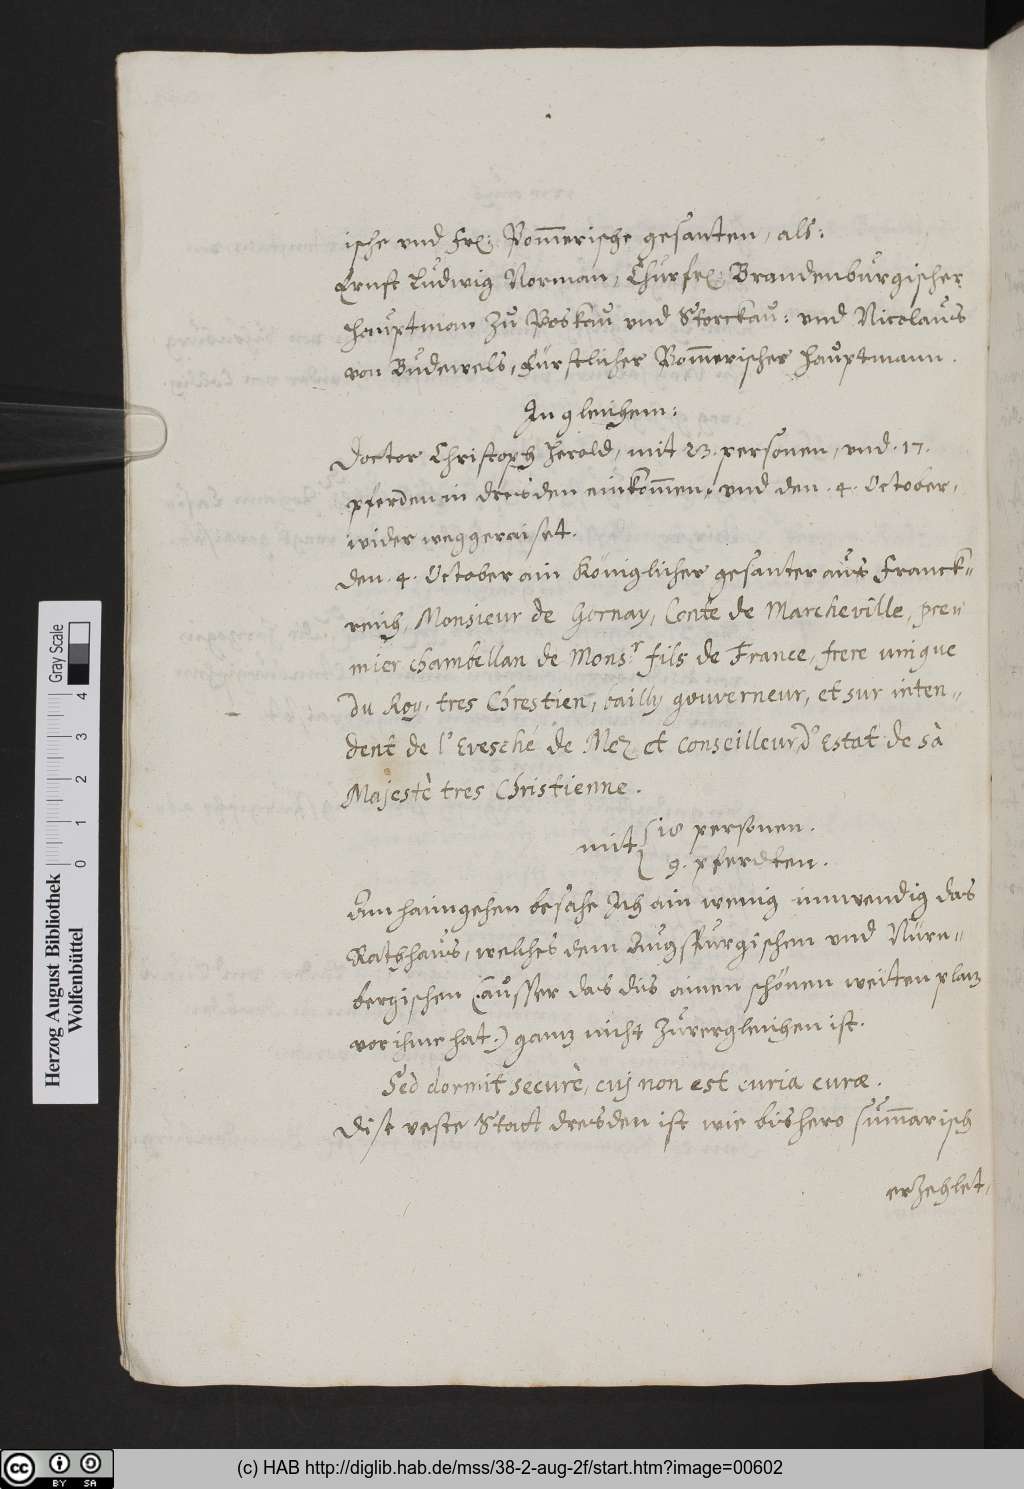 ische vnd Frl: Pom̄erische gesanten, als:
Ernst Ludwig Norman, Churfrl: Brandenburgischer
Hauptman zu Boskau vnd Storckau: vnd Nicolaus
von Budewels, Fürstlicher Pom̄erischer Hauptmann.
In gleichem:
Doctor Christoph Herold, mit 23. personen, vnd. 17.
pferden in dresden einkom̄en, vnd den. 4. October,
wider weggeraiset.
den. 4. October ain Königlicher gesanter aus Franck-
reich, Monsieur de Gornay, Conte de Marcheville, prem
mier chambellan de Mons.r fils de France, frere vnique
du Roy, tres Chrestien, bailly gouverneur, et sur inten-
dent de l'Evesché de Mez et conseilleur d'Estat de sà
Majestè tres Christienne.
mit { 10 personen.
9. pferdten.
Am haimgehen besahe Ich ain wenig innwendig das
Rathhaus, welches dem Augspurgischen vnd Nürn-
bergischen (ausser das dis ainen schönen weitten plaz
vor ihme hat.) ganz nicht zuvergleichen ist.
Sed dormit securè, cuj non est curia curæ.
Dise veste Statt dresden ist wie bishero sum̄arisch
erzehlet,
Herzog August Bibliothek
Wolfenbüttel
Gray Scale
0 1 2 3 4
cc BY SA
(c) HAB http://diglib.hab.de/mss/38-2-aug-2f/start.htm?image=00602